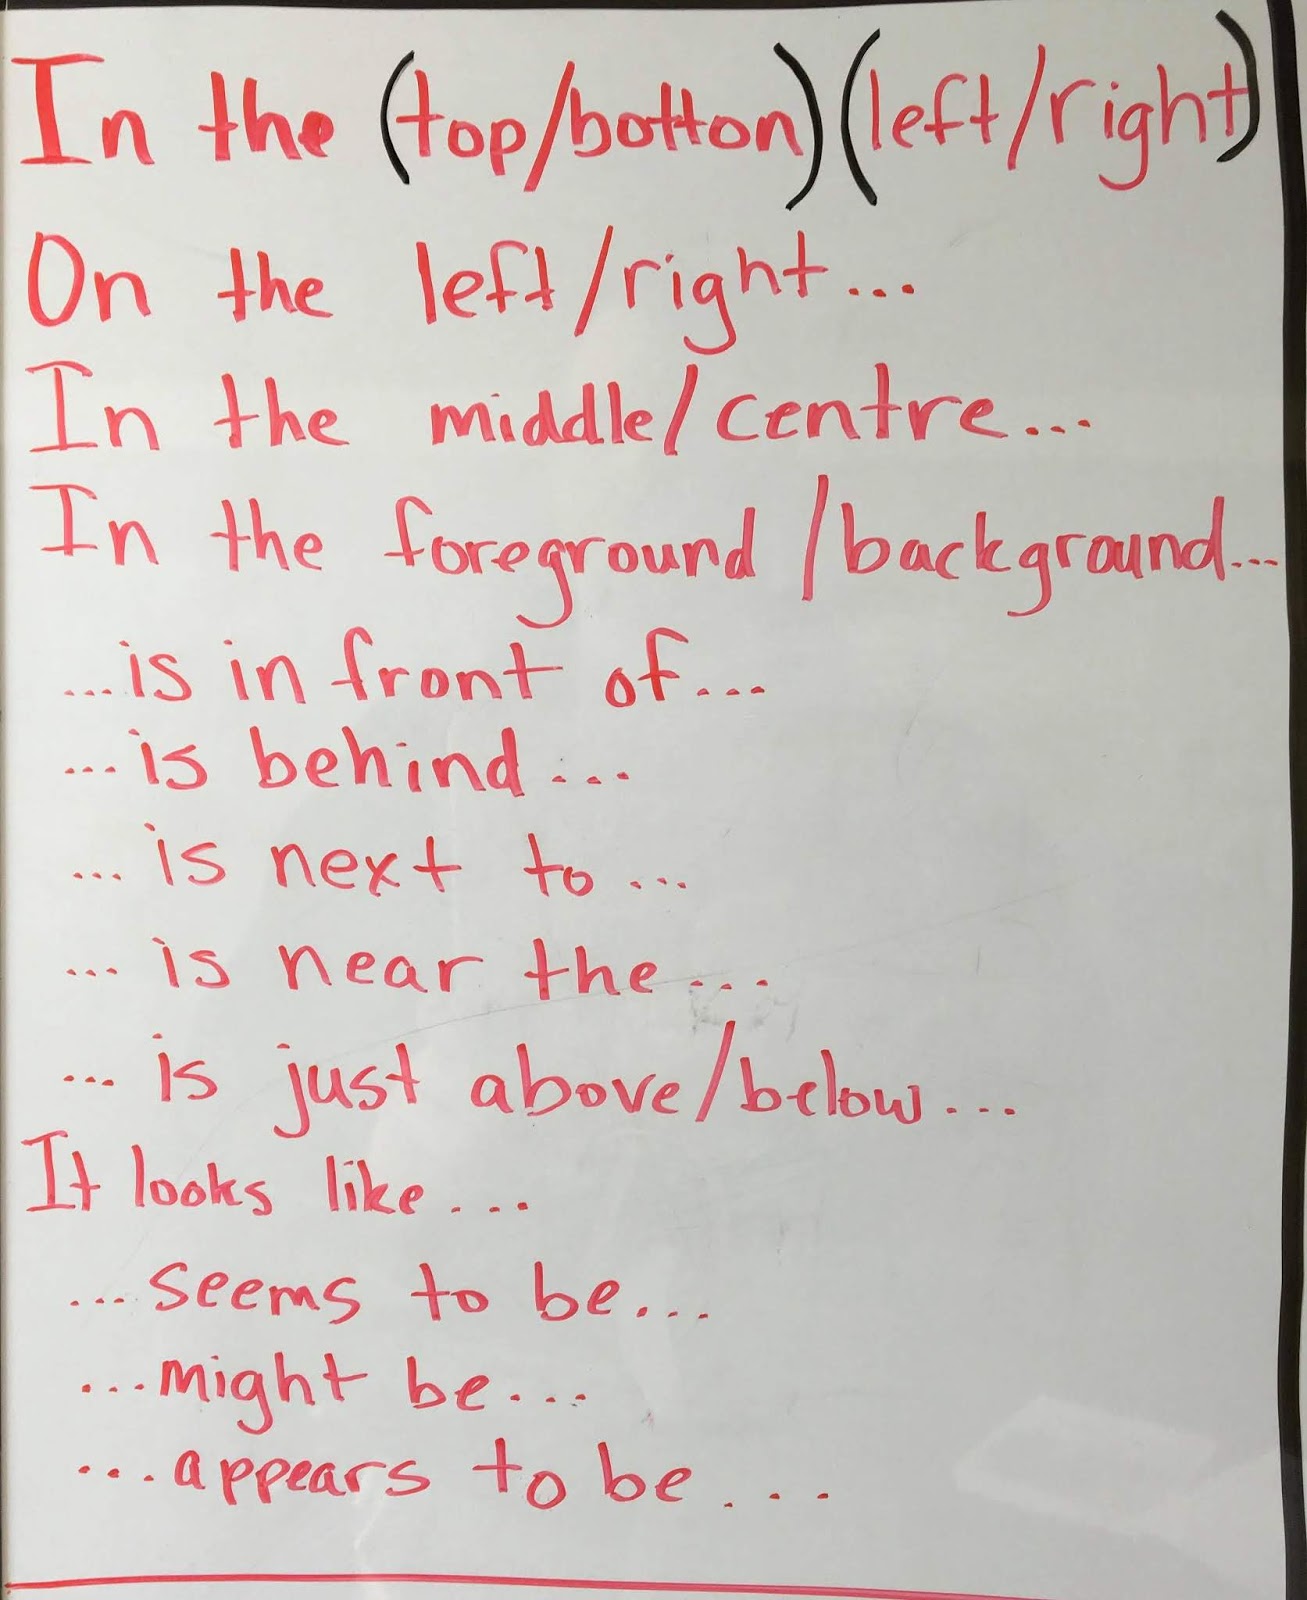 In the (top/botton)(left/right)
On the left/right...
In the middle/centre...
In the foreground/background...
...is in front of...
...is behind...
...is next to...
...is near the...
...is just above/below...
It looks like...
...seems to be...
...might be...
...appears to be...